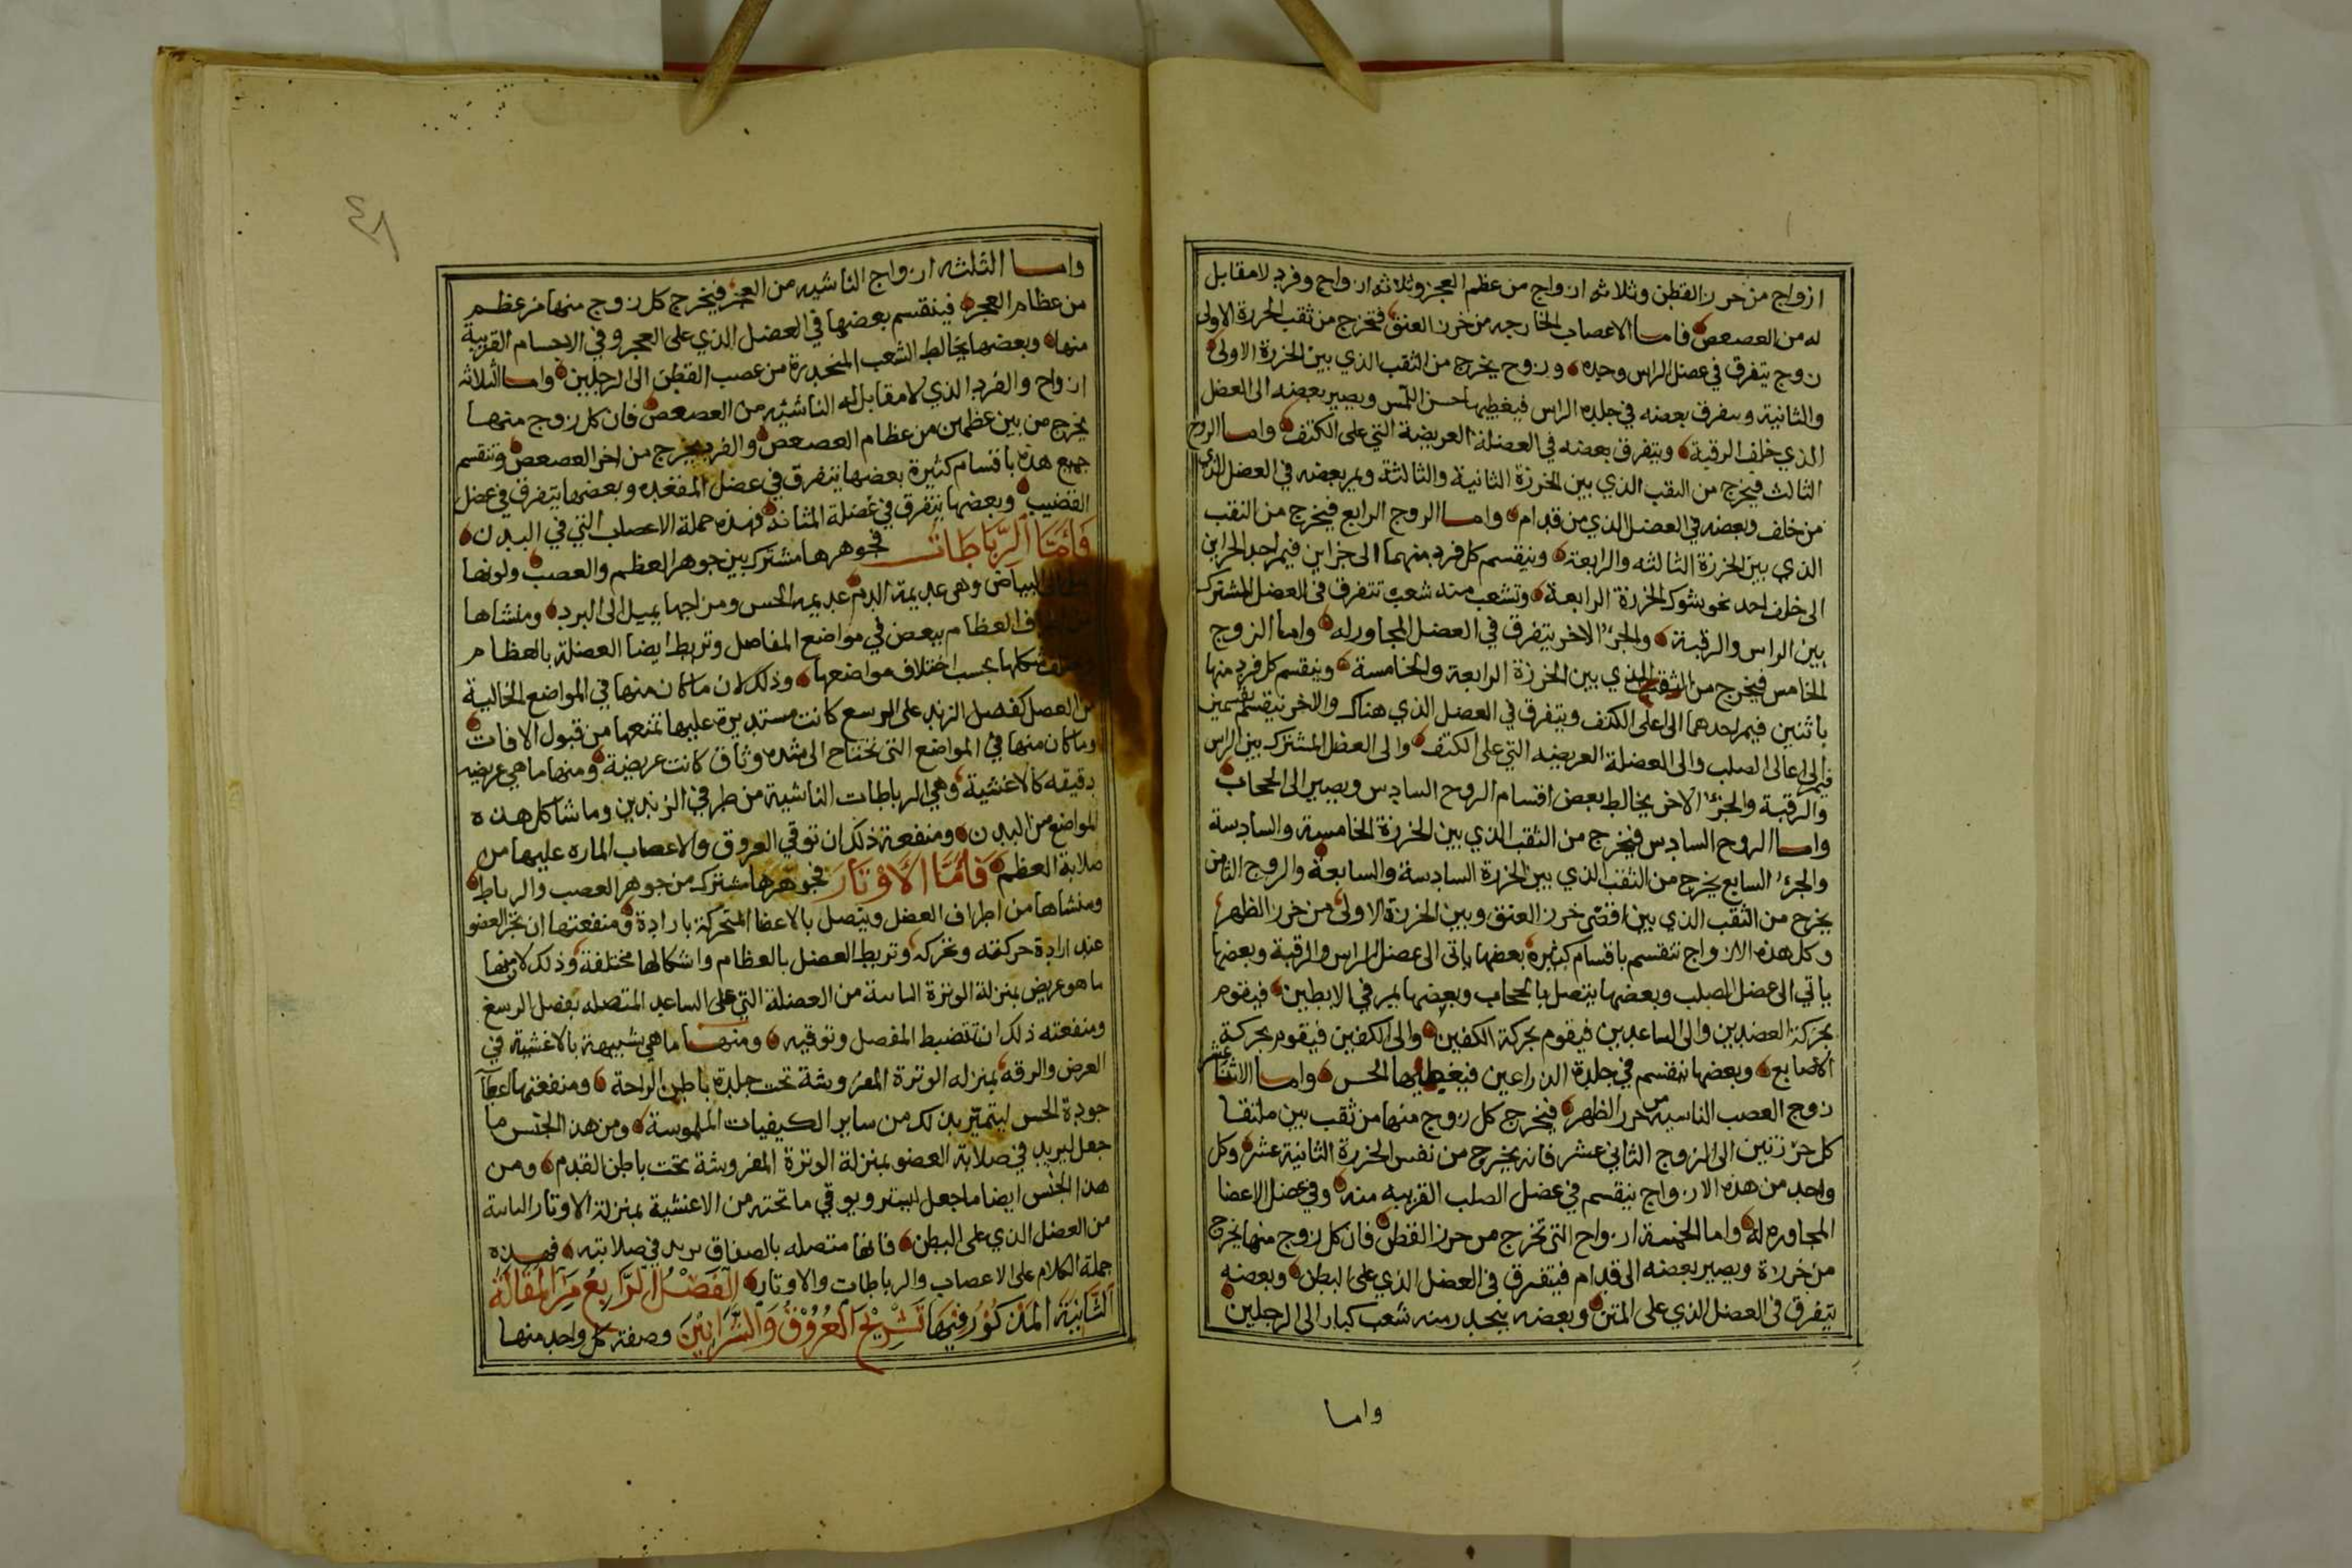 ازواج من خرز القطن وثلاثه ازواج من عظم العجز وثلاثه ازواج وفرد لا مقابل
له من العصعص فاما الاعصاب الخارجه من خرز العنق فتخرج من ثقب الخرزة الاولى
زوج يتفرق في عضل الراس وحده وزوج يخرج من الثقب الذي بين الخرزة الاولى
والثانية ويتفرق بعضه في جلده الراس فيعطيها حسن اللمس ويصير بعضه الى العضل
الذي خلف الرقبة ويتفرق بعضه في العضلة العريضة التي على الكتف واما الزوج
الثالث فيخرج من النقب الذي بين الخرزة الثانية والثالثة ويمر بعضه في العضل الذي
من خلف وبعضه في العضل الذي من قدام واما الزوج الرابع فيخرج من النقب
الذي بين الخرزة الثالثه والرابعة وينقسم كل فرد منهما الى جزاين فيمر احد الجزاين
الى خلف احد نحو شوك الخرزة الرابعة وتشعب منه شعب تتفرق في العضل المشترك
بين الراس والرقبة والجزء الاخر يتفرق في العضل المجاور له واما الزوج
الخامس فيخرج من الثقب الذي بين الخرزة الرابعة والخامسة وينقسم كل فرد منها
باثنين فيمر احدهما الى اعلى الكتف ويتفرق في العضل الذي هناك والاخر ينقسم بقسمين
فيمر الى اعالى الصلب والى العضلة العريضه التي على الكتف والى العضل المشترك بين الراس
والرقبة والجزء الاخر يخالط بعض اقسام الزوج السادس ويصير الى الحجاب
واما الزوج السادس فيخرج من الثقب الذي بين الخرزة الخامسة والسادسة
والجزء السابع يخرج من الثقب الذي بين الخرزة السادسة والسابعة والزوج الثامن
يخرج من الثقب الذي بين اقصى خرز العنق وبين الخرزة الاولى من خرز الظهر
وكل هذه الازواج تنقسم باقسام كثيرة بعضها ياتى الى عضل الراس والرقبة وبعضها
ياتي الى عضل الصلب وبعضها يتصل بالحجاب وبعضها يمر في الابطين فيقوم
بحركة العضدين والى الساعدين فيقوم بحركة الكفين والى الكفين فيقوم بحركة
الاصابع وبعضها ينقسم في جلدة الذراعين فيعطيها الحس واما الاثنا عشر
زوج العصب الناسيه من خرز الظهر فيخرج كل زوج منها من ثقب بين ملتقا
كل خرزتين الى الزوج الثاني عشر فانه يخرج من نفس الخرزة الثانية عشر وكل
واحد من هذه الازواج ينقسم في عضل الصلب القريبه منه وفي عضل الاعضا
المجاوره له واما الخمسة ازواج التى تخرج من خرز القطن فان كل زوج منها يخرج
من خرزة ويصير بعضه الى قدام فيتفرق في العضل الذي على البطن وبعضه
يتفرق في العضل الذي على المتن وبعضه ينحدر منه شعب كبار الى الرجلين
واما
٤٨
واما الثلثه ازواج الناشيه من العجز فيخرج كل زوج منها من عظم
من عظام العجز فينقسم بعضها في العضل الذي على العجز وفي الاجسام القريبة
منها وبعضها يخالط الشعب المنحدرة من عصب القطن الى الرجلين واما الثلاثه
ازواج والفرد الذي لا مقابل له الناشئه من العصعص فان كل زوج منها
يخرج من بين عظمين من عظام العصعص والفرد يخرج من اخر العصعص وتنقسم
جميع هذه باقسام كثيرة بعضها يتفرق في عضل المقعده وبعضها يتفرق في عضل
القضيب وبعضها يتفرق في عضلة المثانة فهذه جملة الاعصاب التي في البدن
فأما الرباطات فجوهرها مشترك بين جوهر العظم والعصب ولونها
البياض وهي عديمة الدم عديمه الحس ومزاجها يميل الى البرد ومنشاها
العظام ببعض في مواضع المفاصل وتربط ايضا العضلة بالعظام
شكلها بحسب اختلاف مواضعها وذلك لان ما كان منها في المواضع الخالية
من العضل كفصل الزند على الرسغ كانت مستديرة عليها تمنعها من قبول الافات
وما كان منها في المواضع التى تحتاج الى شده وثاق كانت عريضة ومنها ما هي عريضه
دقيقه كالاغشية وهي الرباطات الناشية من طرفي الزندين وما شاكل هذه
المواضع من البدن ومنفعة ذلك ان توقي العروق والاعصاب الماره عليها من
صلابة العظم فأما الأوتار فجوهرها مشترك من جوهر العصب والرباط
ومنشاها من اطراف العضل ويتصل بالاعضا المتحركة بارادة ومنفعتها ان تجر العضو
عند ارادة حركته وتحركه وتربط العضل بالعظام واشكالها مختلفة وذلك لان منها
ما هو عريض بمنزلة الوترة الناشة من العضلة التي على الساعد المتصله بفصل الرسغ
ومنفعته ذلك ان تضبط المفصل وتوقيه ومنها ما هي شبيهة بالاغشية في
العرض والرقه بمنزله الوترة المفروشة تحت جلدة باطن الراحة ومنفعتها اعطآ
جودة الحس ليتميز بذلك من ساير الكيفيات الملموسة ومن هذ الجنس ما
جعل ليزيد في صلابة العضو بمنزلة الوترة المفروشة تحت باطن القدم ومن
هذ الجنس ايضا ما جعل ليستر ويوقي ما تحته من الاغشية بمنزلة الاوتار الناشة
من العضل الذي على البطن فانها متصله بالصفاق تزيد في صلابته فهذه
جملة الكلام على الاعصاب والرباطات والاوتار الفصل الرابع من المقالة
الثانية المذكور فيها تشريح العروق والشرايين وصفة كل واحد منها